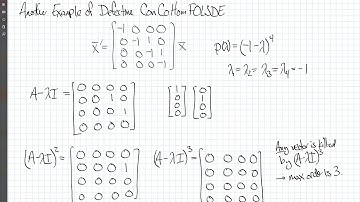 Another Example of Defective ConCoHom FOLSDE
x' = [ -1 0 0 0 ] x
[ 0 -1 1 0 ]
[ 0 0 -1 1 ]
[ 0 0 0 -1 ]
p(λ) = (-1-λ)^4
λ1 = λ2 = λ3 = λ4 = -1
A-λI = [ 0 0 0 0 ]
[ 0 0 1 0 ]
[ 0 0 0 1 ]
[ 0 0 0 0 ]
[ 1 ] [ 0 ]
[ 0 ] [ 1 ]
[ 0 ] [ 0 ]
[ 0 ] [ 0 ]
(A-λI)^2 = [ 0 0 0 0 ]
[ 0 0 0 1 ]
[ 0 0 0 0 ]
[ 0 0 0 0 ]
(A-λI)^3 = [ 0 0 0 0 ]
[ 0 0 0 0 ]
[ 0 0 0 0 ]
[ 0 0 0 0 ]
Any vector is killed
by (A-λI)^3
→ max order is 3.